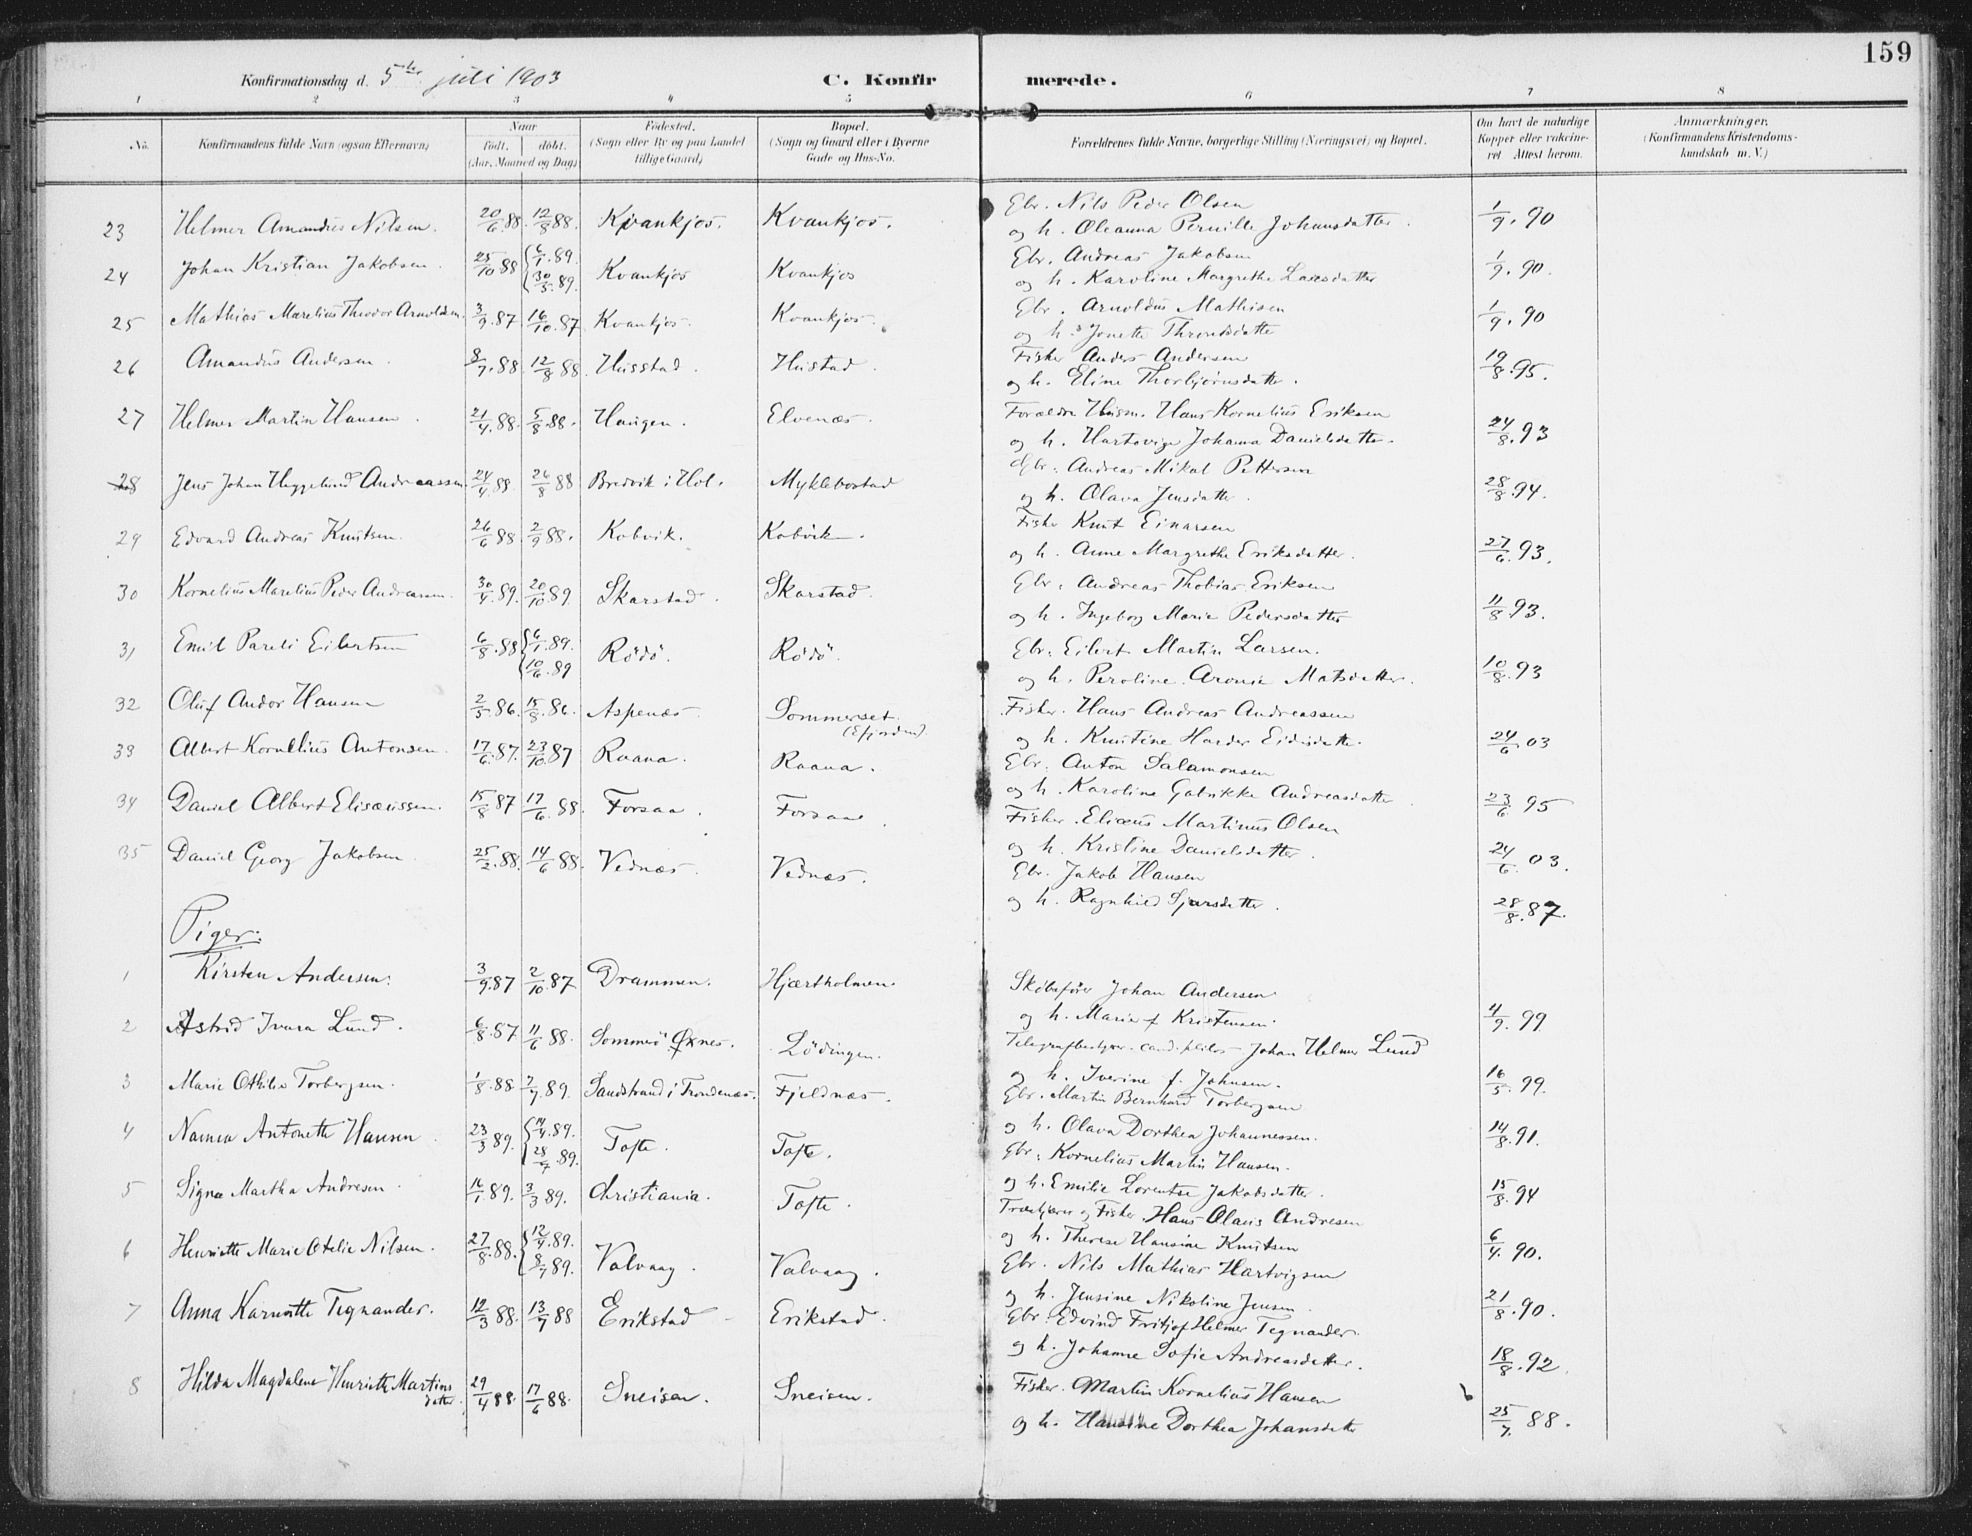 159
Konfirmationsdag d. 5te juli 1903 C. Konfirmerede.
1 2 3 4 5 6 7 8
No. Konfirmandens fulde Navn (ogsaa Efternavn) Naar født. døbt. (Aar, Maaned og Dag) Fødested. (Sogn eller By og paa Landet tillige Gaard) Bopæl. (Sogn og Gaard eller i Byerne Gade og Hus-No. Forældrenes fulde Navne, borgerlige Stilling (Næringsvei) og Bopæl. Om havt de naturlige Kopper eller vakcineret Attest herom. Anmærkninger. (Konfirmandens Kristendomskundskab m. V.)
23 Helmer Amandus Nilsen. 20/6 88. 12/8 88. Kvankjos. Kvankjos. Gbr. Nils Peder Olsen
og h. Oleanna Pernille Johansdatter. 1/9. 90
24 Johan Kristian Jakobsen. 25/10 88 {6/1. 89. 30/5. 89. Kvankjos Kvankjos Gbr. Andreas Jakobsen
og h. Karoline Margrethe Larsdatter 1/9. 90.
25 Mathias Marelius Theodor Arnoldsen. 3/9. 87 16/10. 87 Kvankjos. Kvankjos. Gbr. Arnoldus Mathisen
og h. Jonette Throndsdatter 1/9. 90
26 Amandus Andersen. 8/7. 88. 12/8 88. Husstad. Hustad. Fisker Anders Andersen
og h. Eline Thorbjørnsdatter. 19/8. 95.
27 Helmer Martin Hansen. 21/4. 88. 5/8. 88. Haugen. Elvenæs. Forældre Husm. Hans Kornelius Eriksen
og h. Hartovige Johanna Danielsdatter. 24/8. 93
28 Jens Johan Heggelund Andreassen. 24/4. 88. 26/8 88 Bredvik i Hol. Myklebostad Gbr. Andreas Mikal Pettersen
og h. Olava Jensdatter. 28/8. 94.
29 Edvard Andreas Knutsen. 26/6 88. 2/9 88. Kobvik. Kobvik. Fisker Knut Einarsen
og h. Anne Margrethe Eriksdatter. 27/6. 93.
30 Kornelius Marelius Peder Andreassen. 30/4. 89. 20/10 89. Skarstad. Skarstad. Gbr. Andreas Thobias Eriksen
og h. Ingeborg Marie Pedersdatter 11/8. 93.
31 Emil Pareli Eilertsen 6/8. 88 {6/1. 89. 10/6. 89 Rödö. Rödö. Gbr. Eilert Martin Larsen.
og h. Peroline Aronie Matsdatter. 10/8. 93
32 Oluf Andor Hansen 2/5. 86. 15/8. 86. Aspenæs. Sommerset. (Efjorden). Fisker. Hans Andreas Andreassen
og h. Knutine Harder Eidisdatter. 24/6. 03
33 Albert Kornelius Antonsen. 17/6. 87. 23/10. 87 Raana. Raana. Gbr. Anton Salamonsen
og h. Karoline Gabrikke Andreasdatter. 23/6. 95
34 Daniel Albert Elisæussen. 15/8 87 17/6. 88. Forsaa. Forsaa. Fisker. Eliæus Martinus Olsen
og h. Kristine Danielsdatter. 24/6. 03.
35 Daniel Georg Jakobsen. 25/2. 88. 14/6 88. Vednæs. Vednæs. Gbr. Jakob Hansen
og h. Ragnhild Sjursdatter. 28/8. 87.
Piger:
1 Kirsten Andersen. 3/9. 87 2/10. 87 Drammen. Hjærtholmen. Skibsfører Johan Andersen
og h. Marie f Kristensen. 4/9. 99
2 Astrid Ivara Lund. 6/8. 87 11/6 88. Sommerö Øxnes. Lödingen. Telegrafbestyrer cand. philos. Johan Helmer Lund
og h. Iverine f. Johnsen. 16/5. 99.
3 Marie Othilie Torbergsen. 1/8. 88 7/7. 89. Sandstrand i Trondenæs. Fjeldnæs. Gbr. Martin Bernhard Torbergsen
og h. Olava Dorthea Johannessen. 14/8. 91.
4 Nanna Antonette Hansen. 23/3 89. {14/4. 89. 28/7. 89. Tofte. Tofte. Gbr. Kornelius Martin Hansen.
og h. Emilie Lorentse Jakobsdatter. 15/8. 94
5 Signe Martha Andresen. 16/1 89. 3/3 89. Christiania. Tofte. Træskjærer og Fisker. Hans Olaus Andresen
og h. Therese Hansine Knutsen 6/4. 90.
6 Henriette Marie Otelie Nilsen. 27/8. 88. {12/4. 89. 8/7 89. Valvaag. Valvaag. Gbr. Nils Mathias Hartvigsen
og h. Jensine Nikoline Jensen. 21/8. 90.
7 Anna Karnitte Tegnander. 12/3 88. 13/7 88 Erikstad Erikstad. Gbr. Edvind Fritjof Helmer Tegnander.
og h. Johanne Sofie Andreasdatter. 18/8. 92.
8 Hilda Magdalene Henriette Martinsdatter. 29/4 88. 17/6 88. Sneisen. Sneisen. Fisker. Martin Kornelius Hansen
og h. Hansine Dorthea Johansdatter 25/7. 88.